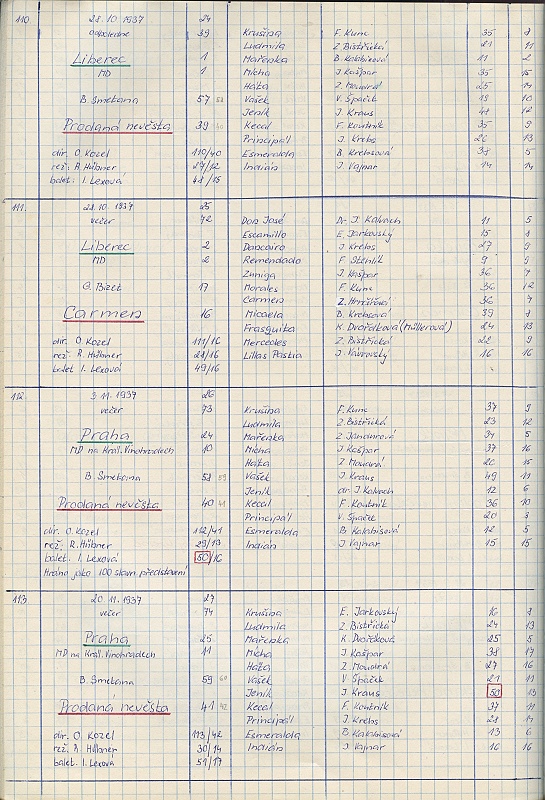 110 28.10.1937 24
odpoledne 39 Krušina F. Kunc 35 8
Ludmila Z. Bistřická 21 11
Liberec 1 Mařenka B. Kalabisová 11 2
MD 1 Mícha J. Kašpar 35 15
Háta Z. Moudrá 25 14
B. Smetana 57 58 Vašek V. Špaček 19 10
Jeník J. Kraus 48 12
Prodaná nevěsta 39 40 Kecal F. Koutník 35 9
Principál J. Krebs 26 13
dir. O. Kozel 110/40 Esmeralda B. Krebsová 38 5
rež. R. Hübner 27/12 Indián J. Vajnar 14 14
balet. I. Lexová 48/15
111. 28.10.1937 25
večer 72 Don José Dr. J. Kalvach 11 5
Escamillo E. Jarkovský 15 1
Liberec 2 Dancairo J. Krebs 27 9
MD 2 Remendado F. Stehlík 9 9
Zuniga J. Kašpar 36 7
G. Bizet 17 Morales F. Kunc 36 12
Carmen Z. 36 7
Carmen 16 Micaela B. Krebsová 39 8
Frasquita K. Dvořáková (Müllerová) 24 13
dir. O. Kozel 111/16 Mercedes Z. Bistřická 22 9
rež. R. Hübner 28/16 Lillas Pastia J. 16 16
balet I. Lexová 49/16
112 3.11.1937 26
večer 73 Krušina F. Kunc 37 9
Ludmila Z. Bistřická 23 12
Praha 24 Mařenka Z. 31 5
MD na Král. Vinohradech 10 Mícha J. Kašpar 37 16
Háta Z. Moudrá 26 15
B. Smetana 58 59 Vašek J. Kraus 49 11
Jeník dr. J. Kalvach 12 6
Prodaná nevěsta 40 41 Kecal F. Koutník 36 10
Principál V. Špaček 20 3
dir. O. Kozel 112/41 Esmeralda B. Kalabisová 12 5
rež. R. Hübner 29/13 Indián J. Vajnar 15 15
balet. I. Lexová 50/16
Hráno jako 100 slavn. představení
113. 20.11.1937 27
večer 74 Krušina E. Jarkovský 16 7
Ludmila Z. Bistřická 24 13
Praha 25 Mařenka K. Dvořáková 25 5
MD na Král. Vinohradech 11 Mícha J. Kašpar 38 17
Háta Z. Moudrá 27 16
B. Smetana 59 60 Vašek V. Špaček 21 11
Jeník J. Kraus 50 13
Prodaná nevěsta 41 42 Kecal F. Koutník 37 11
Principál J. Krebs 28 14
dir. O Kozel 113/42 Esmeralda B. Kalabisová 13 6
rež. R. Hübner 30/14 Indián J. Vajnar 16 16
balet. I. Lexová 51/17